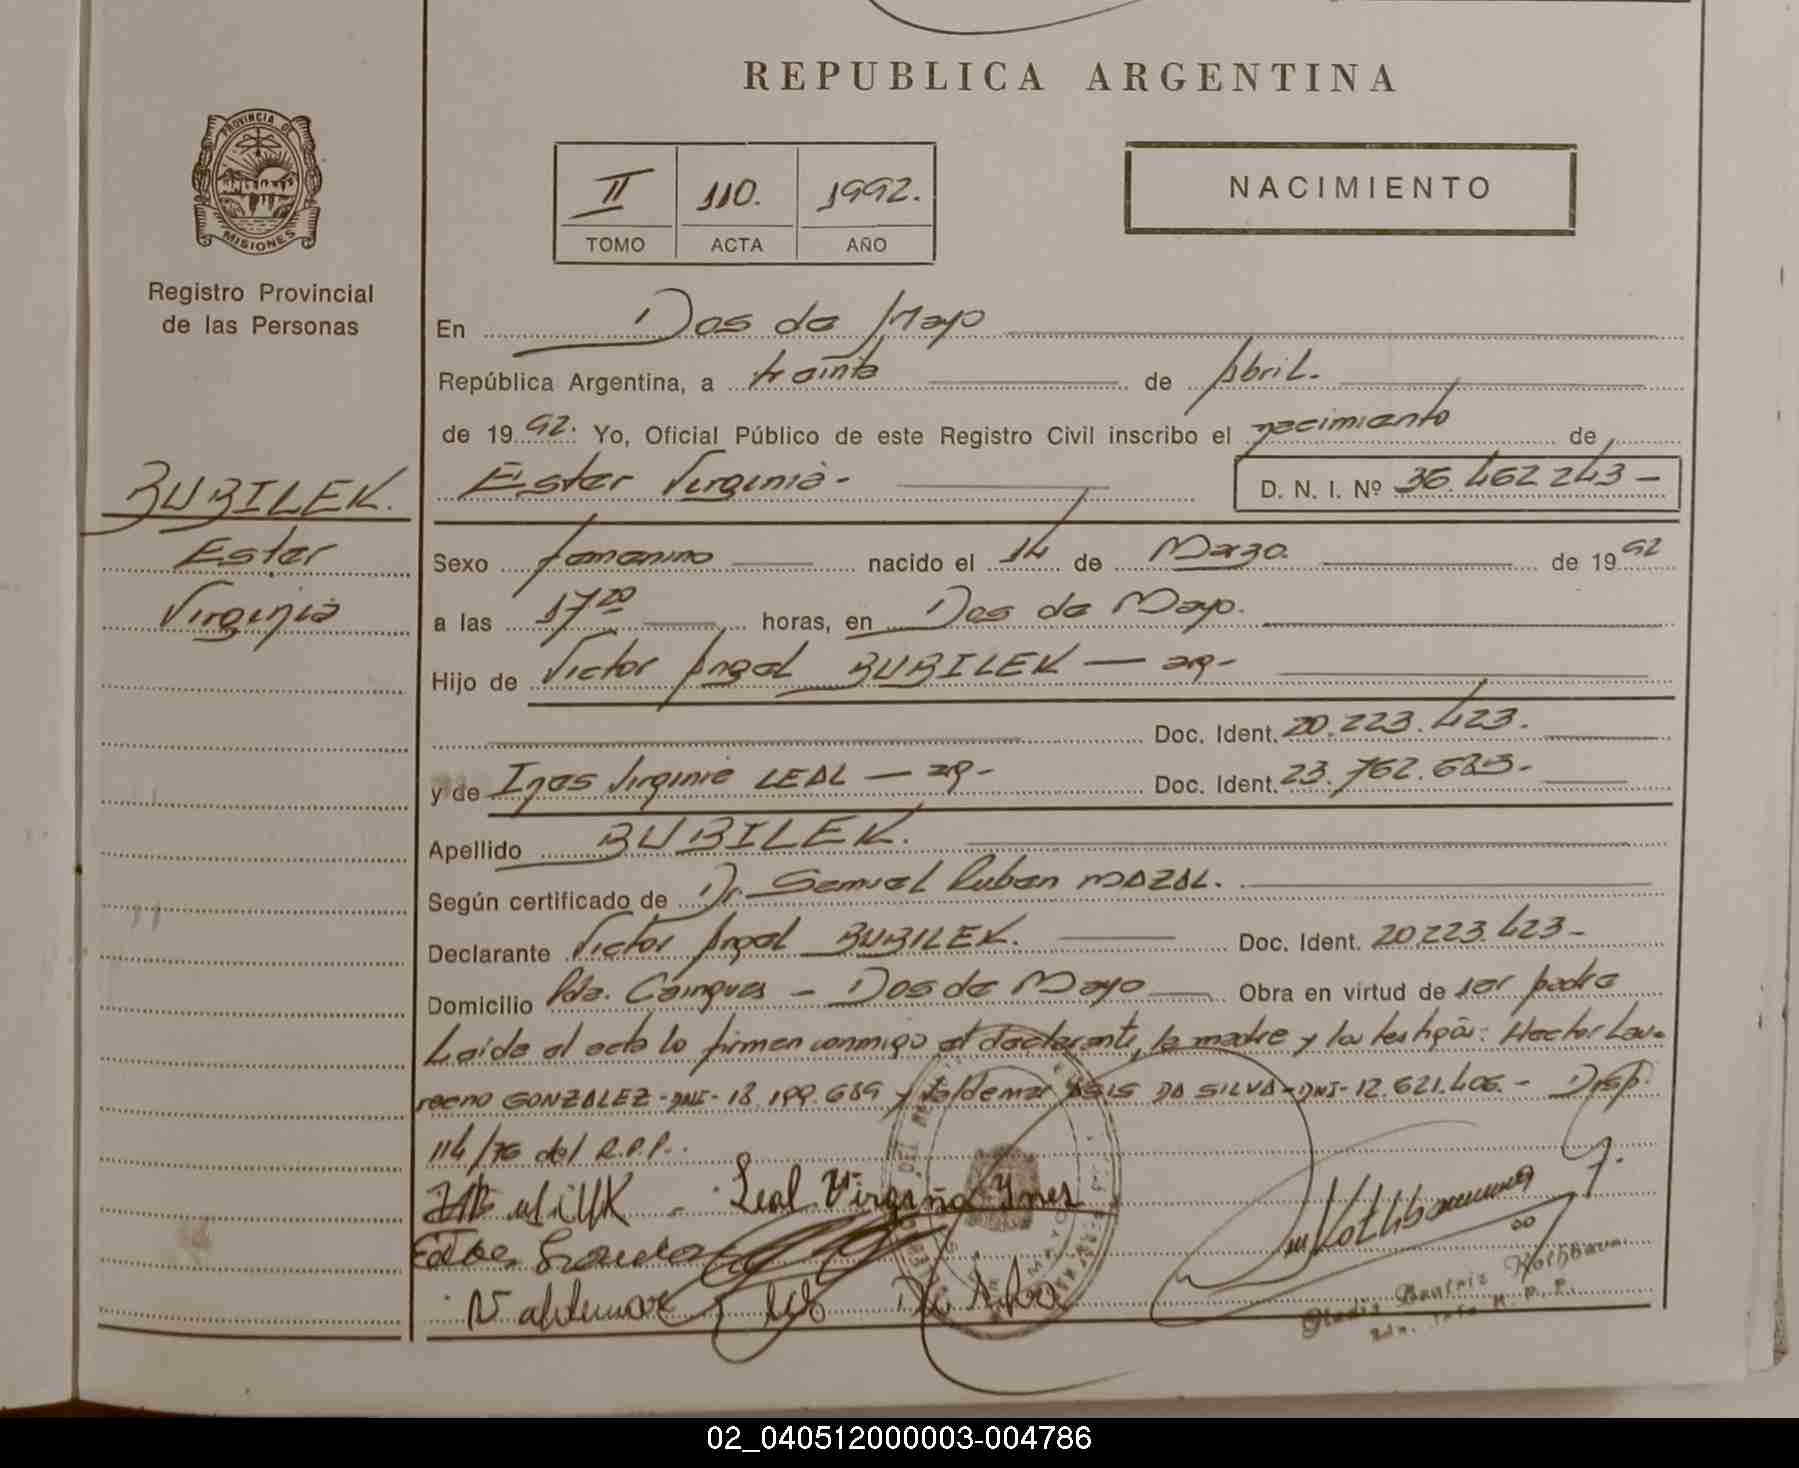 REPUBLICA ARGENTINA
PROVINCIA DE
MISIONES
Registro Provincial
de las Personas
II 110. 1992.
TOMO ACTA AÑO
NACIMIENTO
BUBILEK.
Ester
Virginia
En Dos de Mayo
República Argentina, a treinta de Abril.
de 1992. Yo, Oficial Público de este Registro Civil inscribo el nacimiento de
Ester Virginia- D. N. I. Nº 36.462243-
Sexo femenino nacido el 14 de Marzo. de 1992
a las 17 20 horas, en Dos de Mayo.
Hijo de Victor Angel BUBILEK — ar-
Doc. Ident. 20.223.423.
y de Ines Virginia LEAL — ar- Doc. Ident. 23.762.683-
Apellido BUBILEK.
Según certificado de Dr. Samuel Ruben MAZAL.
Declarante Victor Angel BUBILEK. Doc. Ident. 20.223.423-
Domicilio Pda. Cainguas - Dos de Mayo Obra en virtud de ser padre
Leída el acta lo firman conmigo el declarante, la madre y los testigos: Hector Lau-
reano GONZALEZ-DNI-18.199.689 y Valdemar ASIS DA SILVA-DNI-12.621.406.- Disp.
114/76 del R.P.P..
Leal Virginia Ynes
Valdemar
Gladis Beatriz Kothbaum
02_040512000003-004786